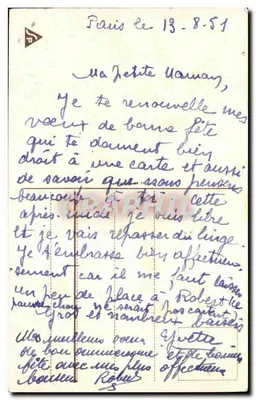 Paris le 13-8-51
Ma petite Maman,
Je te renouvelle mes
vœux de bonne fête
qui te donnent bien
droit à une carte et aussi
de savoir que nous pensons
beaucoup à toi. Cette
après-midi je suis libre
et je vais repasser du linge.
Je t'embrasse bien affectueu-
sement car il me faut laisser
un peu de place à Robert le
pauvre chou ne serait pas content.
Gros et nombreux baisers
Yvette
Mes meilleurs vœux
de bon anniversaire et de bonne
fête avec mes plus affectueux
baisers Robert